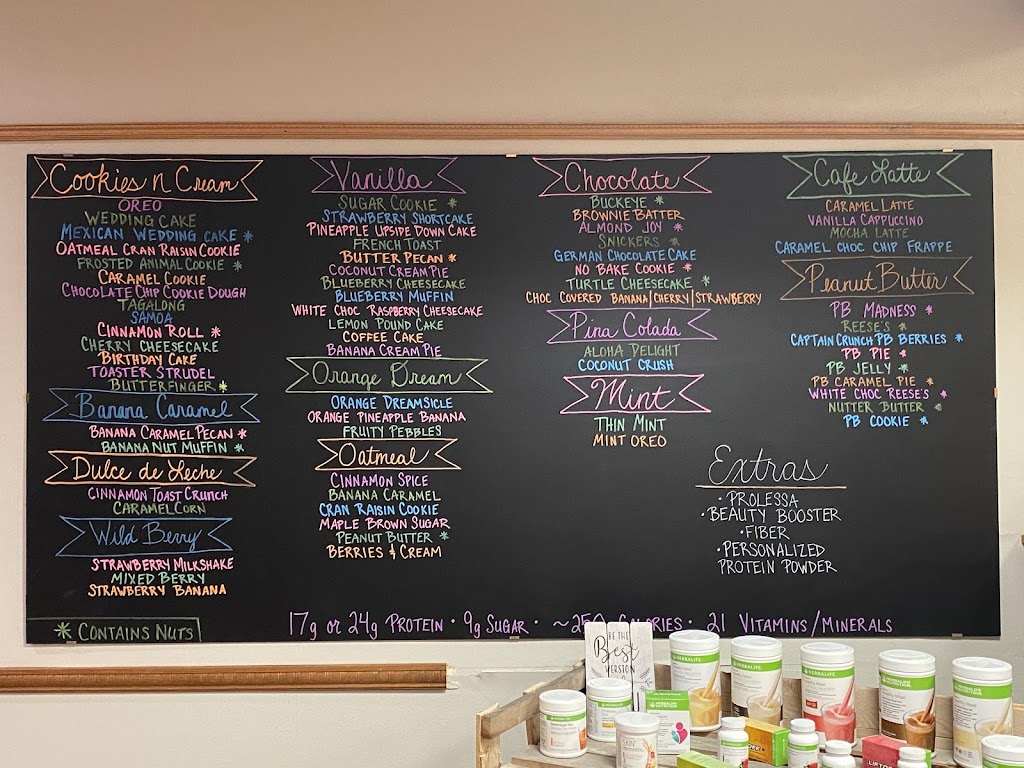 Cookies n Cream
OREO
WEDDING CAKE
MEXICAN WEDDING CAKE *
OATMEAL CRAN RAISIN COOKIE
FROSTED ANIMAL COOKIE *
CARAMEL COOKIE
CHOCOLATE CHIP COOKIE DOUGH
TAGALONG
SAMOA
CINNAMON ROLL *
CHERRY CHEESECAKE
BIRTHDAY CAKE
TOASTER STRUDEL
BUTTERFINGER *
Banana Caramel
BANANA CARAMEL PECAN *
BANANA NUT MUFFIN *
Dulce de Leche
CINNAMON TOAST CRUNCH
CARAMEL CORN
Wild Berry
STRAWBERRY MILKSHAKE
MIXED BERRY
STRAWBERRY BANANA
* CONTAINS NUTS
Vanilla
SUGAR COOKIE *
STRAWBERRY SHORTCAKE
PINEAPPLE UPSIDE DOWN CAKE
FRENCH TOAST
BUTTER PECAN *
COCONUT CREAM PIE
BLUEBERRY CHEESECAKE
BLUEBERRY MUFFIN
WHITE CHOC RASPBERRY CHEESECAKE
LEMON POUND CAKE
COFFEE CAKE
BANANA CREAM PIE
Orange Dream
ORANGE DREAMSICLE
ORANGE PINEAPPLE BANANA
FRUITY PEBBLES
Oatmeal
CINNAMON SPICE
BANANA CARAMEL
CRAN RAISIN COOKIE
MAPLE BROWN SUGAR
PEANUT BUTTER *
BERRIES & CREAM
Chocolate
BUCKEYE *
BROWNIE BATTER
ALMOND JOY *
SNICKERS *
GERMAN CHOCOLATE CAKE
NO BAKE COOKIE *
TURTLE CHEESECAKE *
CHOC COVERED BANANA/CHERRY/STRAWBERRY
Pina Colada
ALOHA DELIGHT
COCONUT CRUSH
Mint
THIN MINT
MINT OREO
Cafe Latte
CARAMEL LATTE
VANILLA CAPPUCCINO
MOCHA LATTE
CARAMEL CHOC CHIP FRAPPE
Peanut Butter
PB MADNESS *
REESE'S *
CAPTAIN CRUNCH PB BERRIES *
PB PIE *
PB JELLY *
PB CARAMEL PIE *
WHITE CHOC REESE'S *
NUTTER BUTTER *
PB COOKIE *
Extras
· PROLESSA
· BEAUTY BOOSTER
· FIBER
· PERSONALIZED
PROTEIN POWDER
17g or 24g PROTEIN · 9g SUGAR · ~250 CALORIES · 21 VITAMINS/MINERALS
BE THE
Best
VERSION
HERBALIFE
HERBALIFE
HERBALIFE
HERBALIFE
HERBALIFE
HERBALIFE
HERBALIFE
SKIN